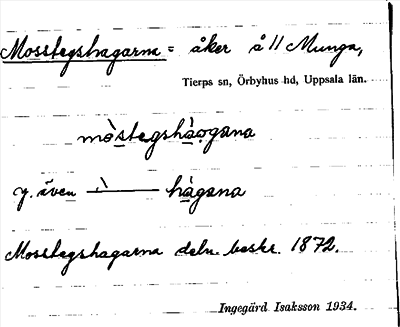 Mosstegshagarna = åker å 11 Munga,
Tierps sn, Örbyhus hd, Uppsala län.
mòstegshàọgana
y. även —̀— hàgana
Mosstegshagarna deln. beskr. 1872.
Ingegärd Isaksson 1934.